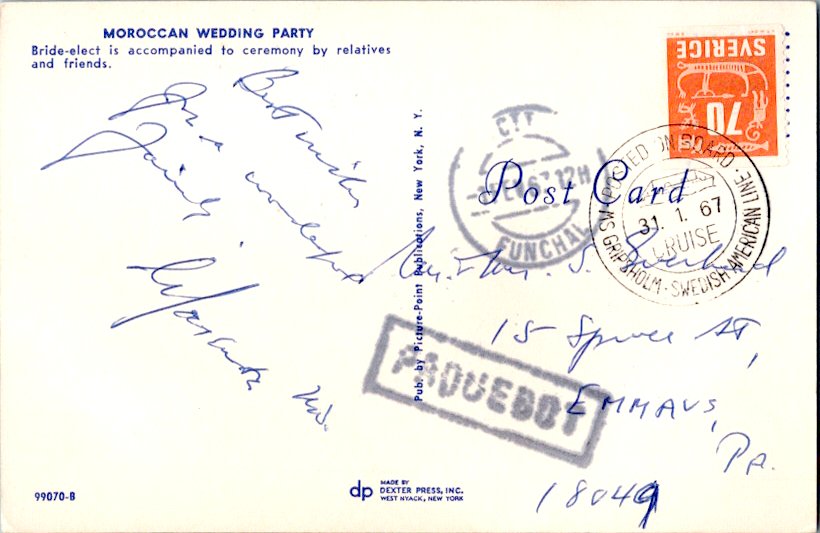 MOROCCAN WEDDING PARTY
Bride-elect is accompanied to ceremony by relatives
and friends.
SVERIGE
70
CTT
67 12H
FUNCHAL
Post Card
POSTED ON BOARD
31. 1. 67
CRUISE
M.S. GRIPSHOLM · SWEDISH AMERICAN LINE
Best wishes
for a wonderful
family
S.
15 Spruce St,
EMMAUS,
Pa.
18049
PAQUEBOT
Pub. by Picture-Point Publications, New York, N. Y.
99070-B
dp
MADE BY
DEXTER PRESS, INC.
WEST NYACK, NEW YORK